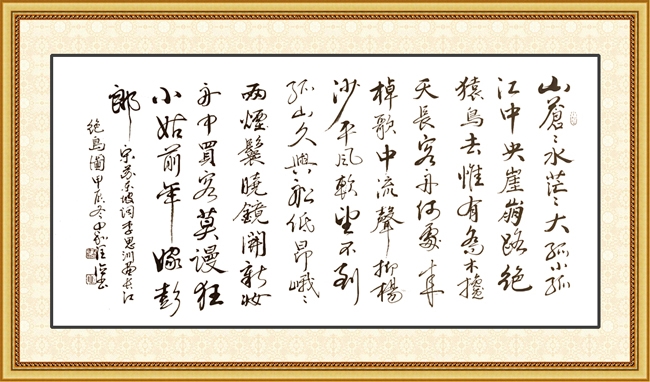 山蒼〻水茫〻大孤小孤
江中央崖崩路絕
猿鳥去惟有喬木攙
天長客舟何處來
棹歌中流聲抑揚
沙平風軟望不到
孤山久與船低昂峨〻
兩煙鬟曉鏡開新妝
舟中買客莫謾狂
小姑前年嫁彭
郎 宋蘇东坡詞李思训畫长江
絕島圖甲辰冬